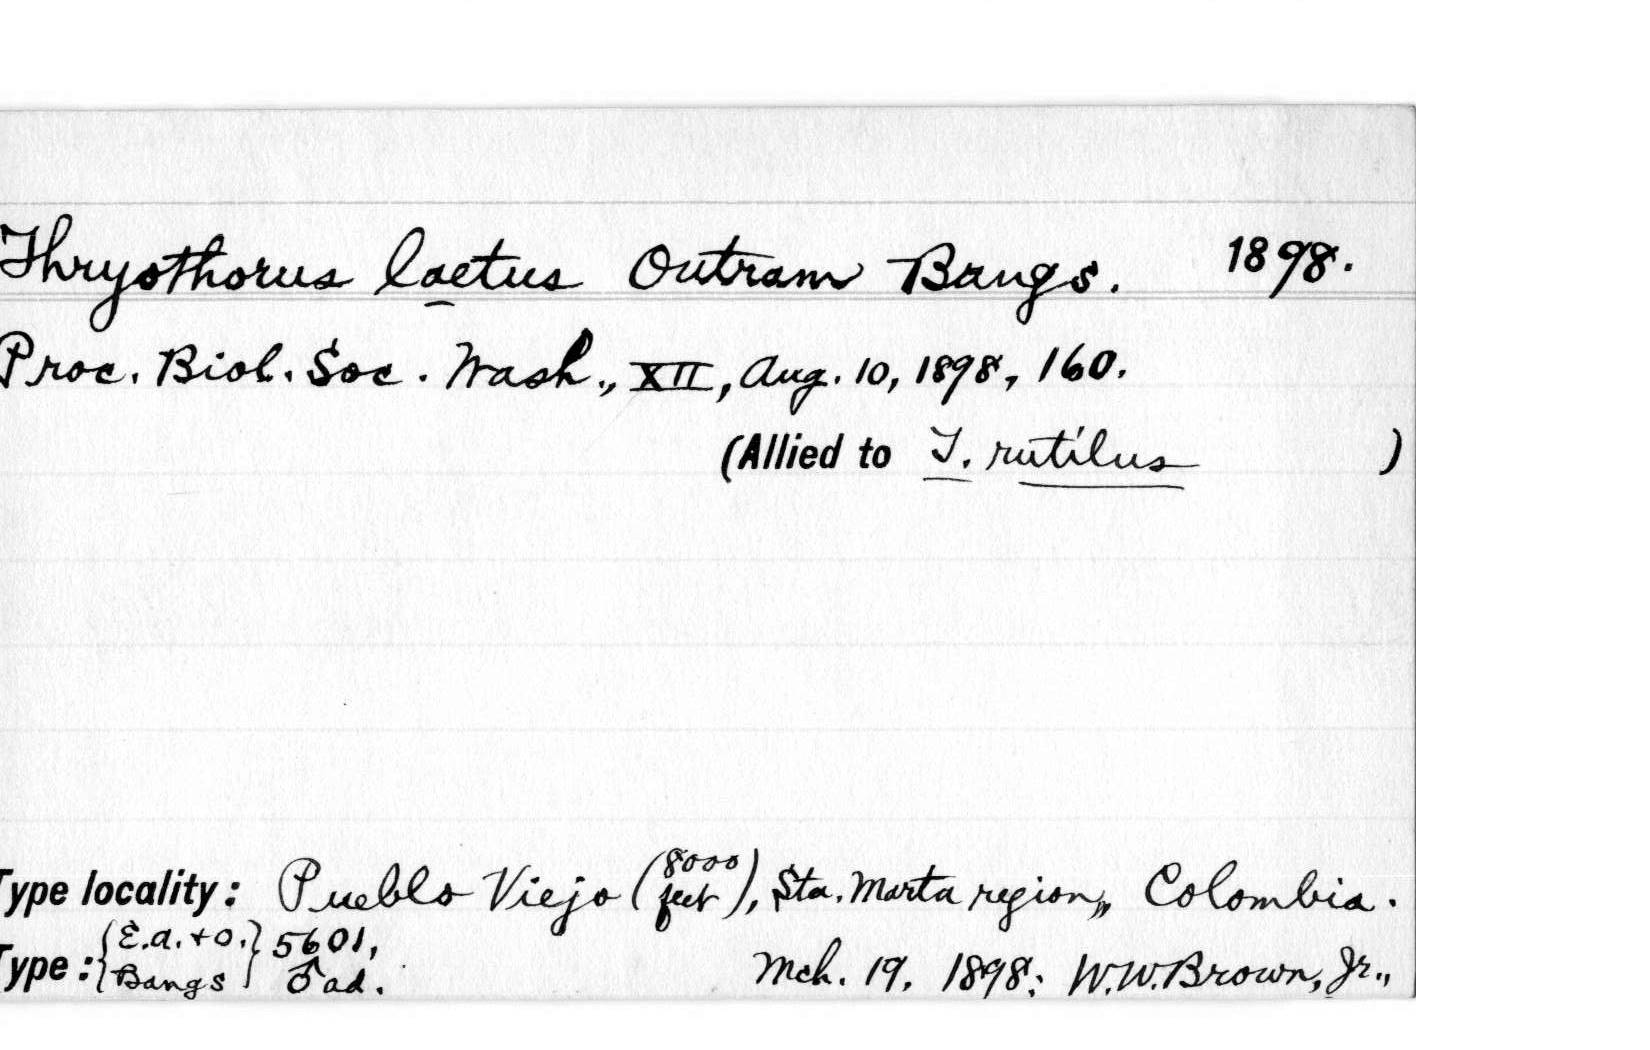 Thryothorus laetus Outram Bangs. 1898.
Proc. Biol. Soc. Wash., XII, Aug. 10, 1898, 160.
(Allied to T. rutilus )
Type locality: Pueblo Viejo (8000 feet), Sta. Marta region, Colombia.
Type: {E.A. + O. Bangs} 5601, ♂ ad. Mch. 19, 1898; W.W. Brown, Jr.,